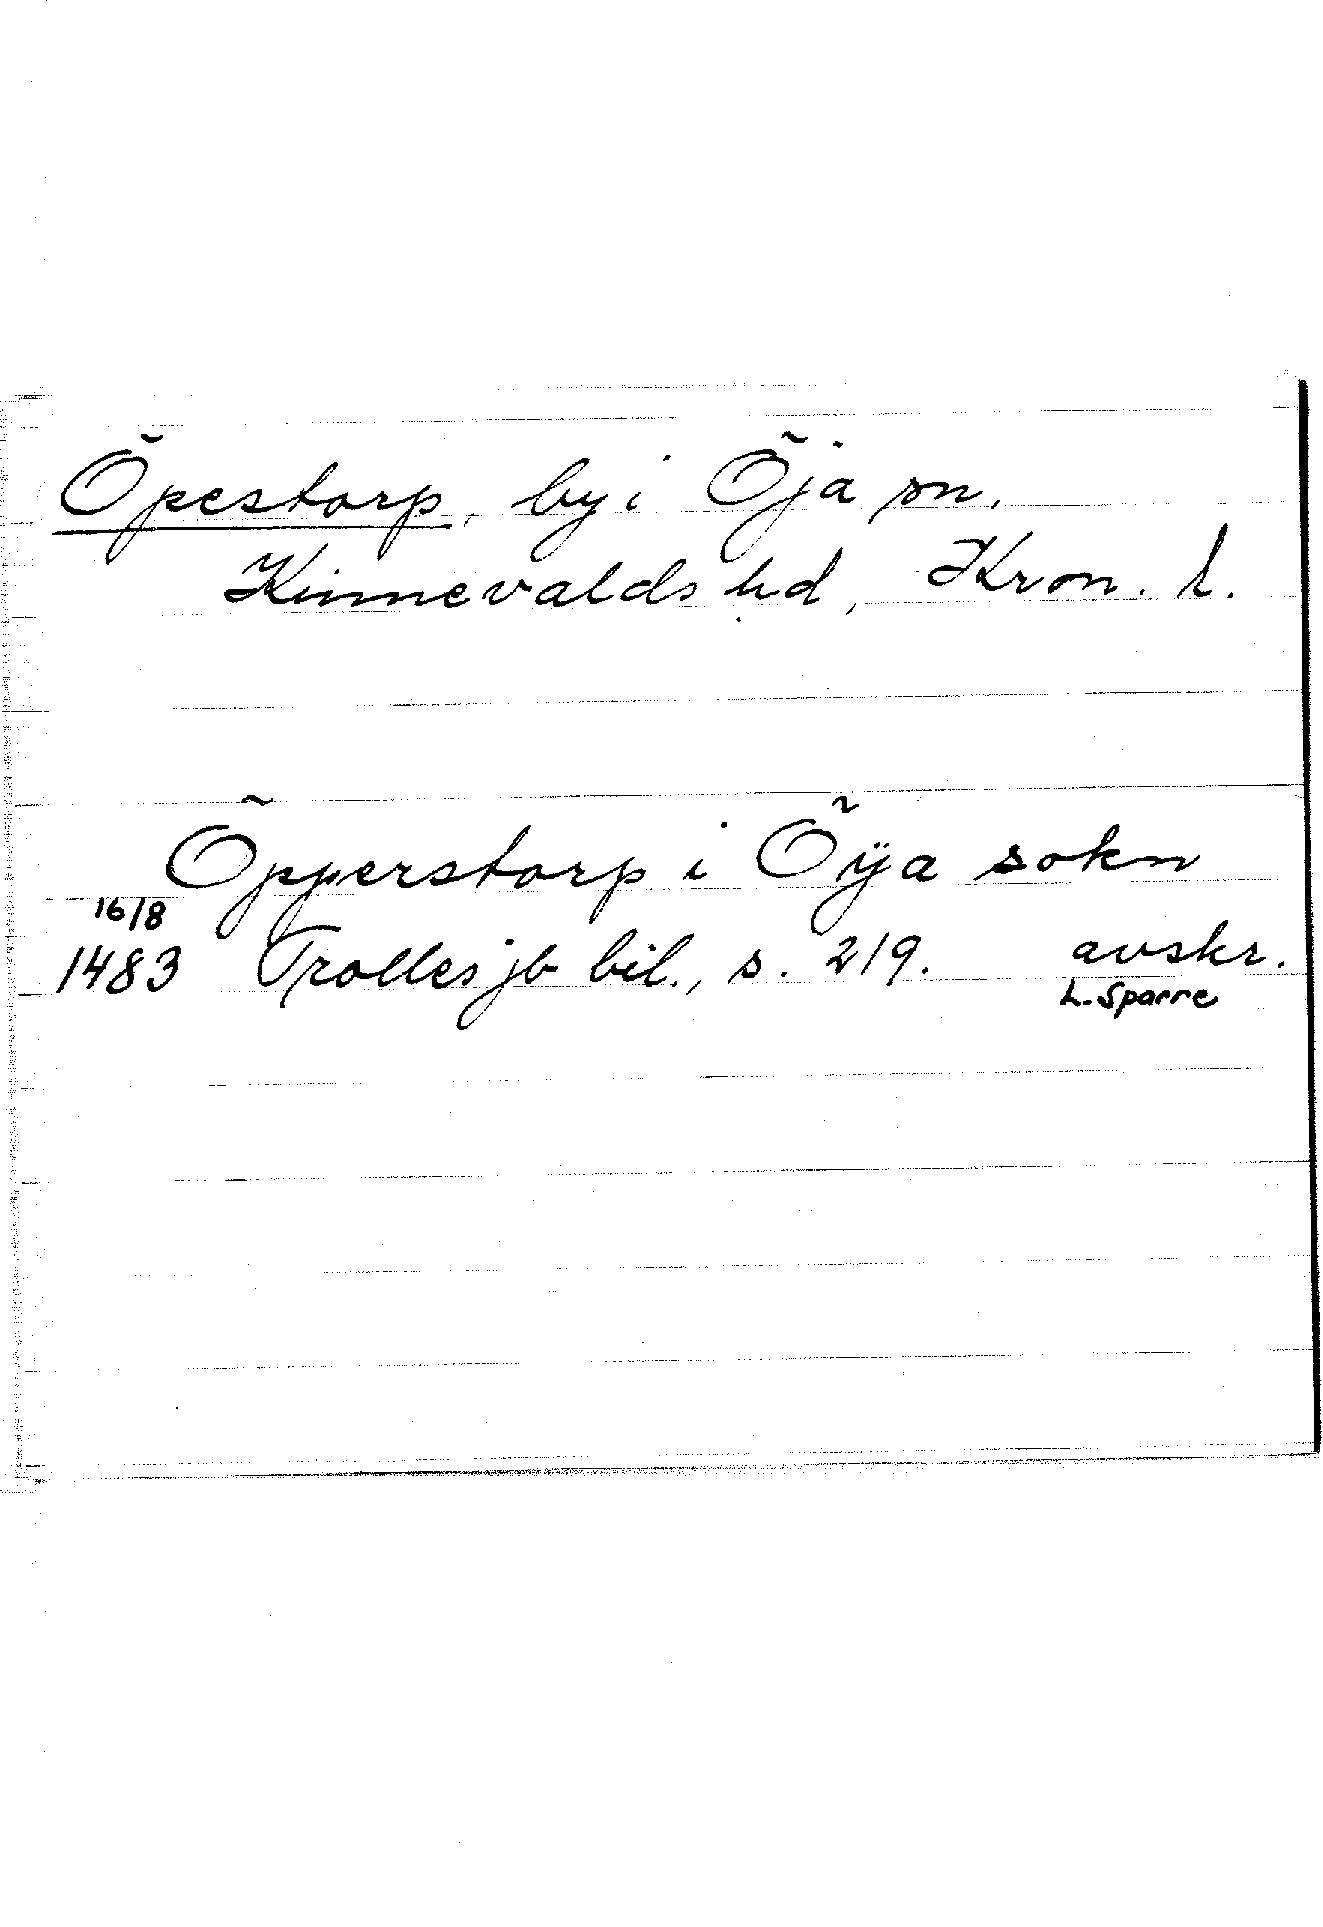 Öpestorp, by i Öja sn.
Kinnevalds hd, Kron. l.
Öpperstorp i Öÿa sokn
16/8
1483 Trolles jb bil., s. 219. avskr.
L. Sparre